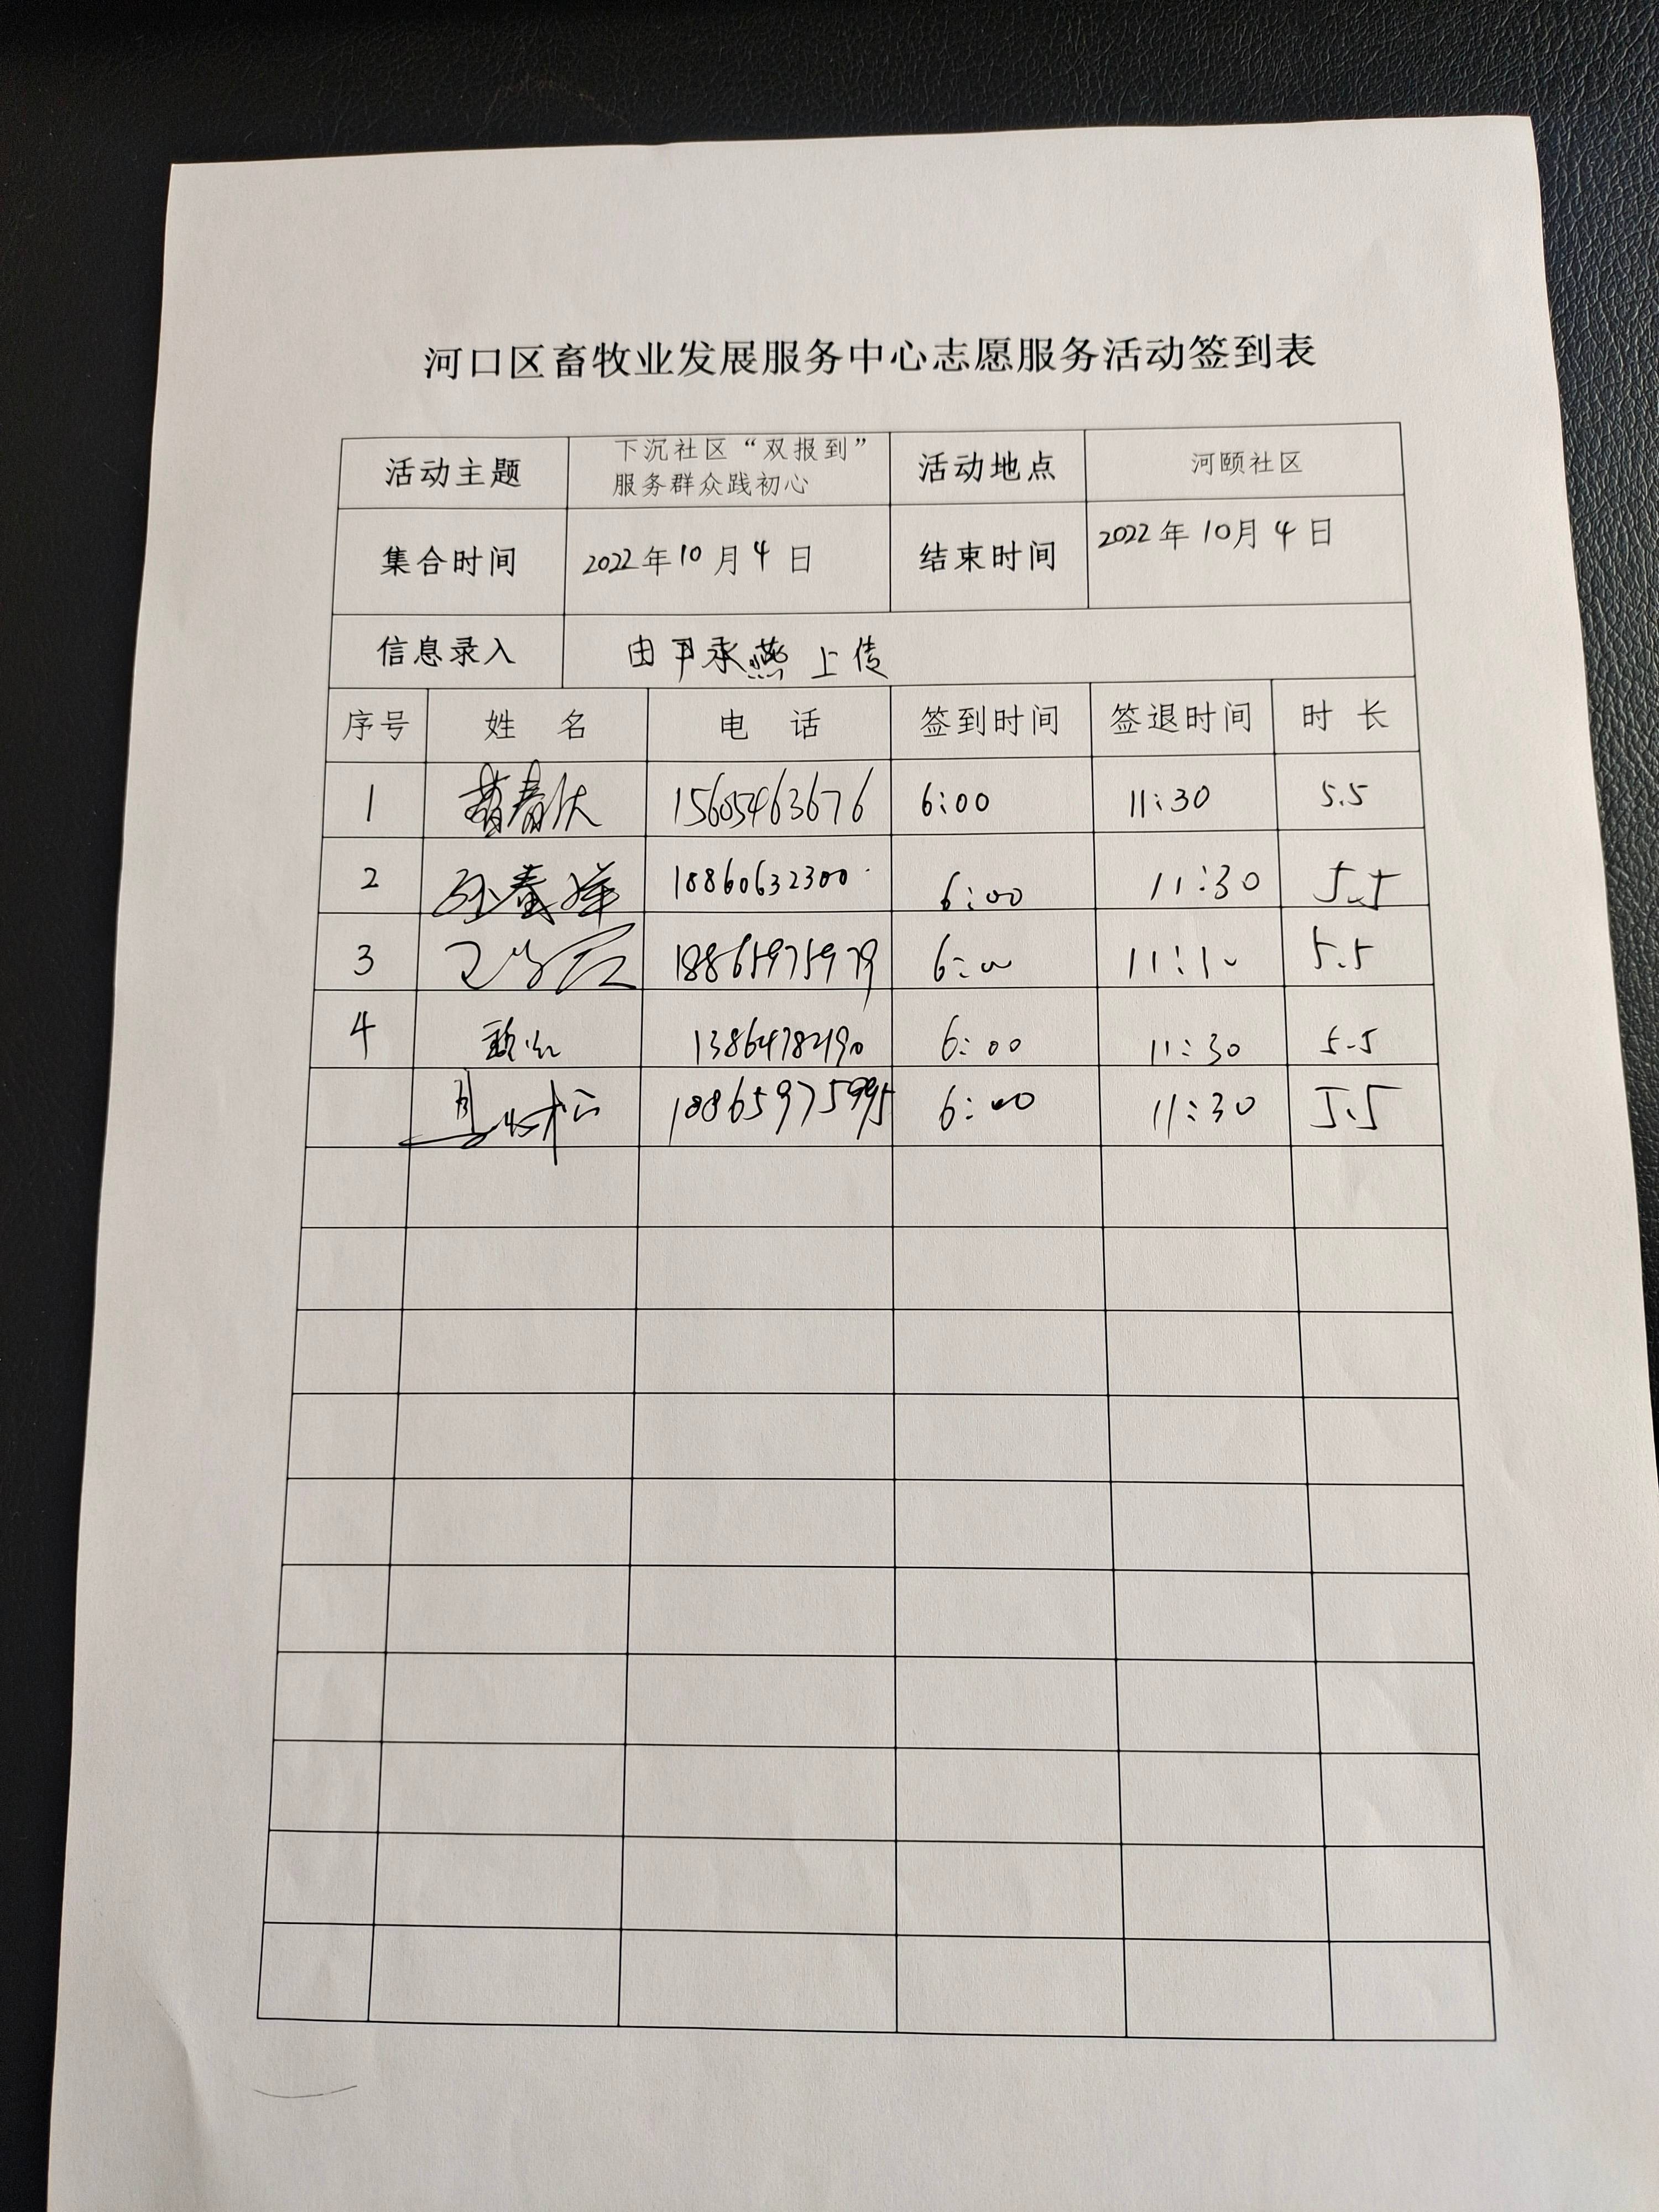 河口区畜牧业发展服务中心志愿服务活动签到表
活动主题 下沉社区“双报到” 服务群众践初心 活动地点 河颐社区
集合时间 2022年10月4日 结束时间 2022年10月4日
信息录入 由尹承燕上传
序号 姓 名 电 话 签到时间 签退时间 时 长
1 15605463676 6:00 11:30 5.5
2 18860632300 6:00 11:30 5.5
3 18865975979 6:00 5.5
4 6:00 11:30 5.5
18865975995 6:00 11:30 5.5